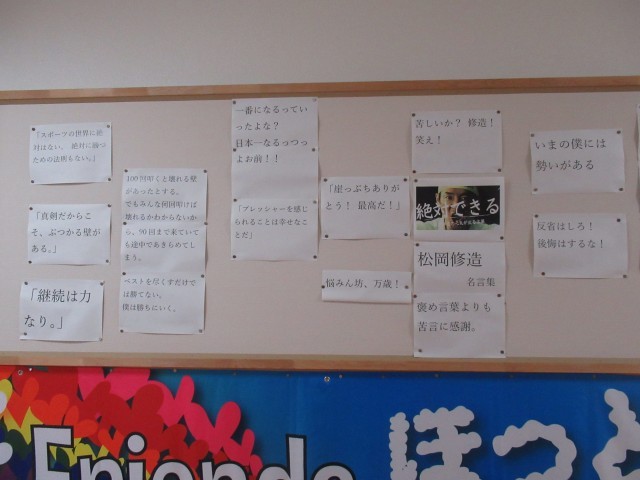 「スポーツの世界に絶
対はない。絶対に勝つ
ための法則もない。」
「真剣だからこ
そ、ぶつかる壁が
ある。」
「継続は力
なり。」
100回叩くと壊れる壁
があったとする。
でもみんな何回叩けば
壊れるかわからないか
ら、90回まで来ていて
も途中であきらめてし
まう。
ベストを尽くすだけで
は勝てない。
僕は勝ちにいく。
一番になるってい
ったよな？
日本一なるっつっ
よお前！！
「プレッシャーを感じ
られることは幸せなこ
とだ」
「崖っぷちありが
とう！ 最高だ！」
悩みん坊、万歳！
苦しいか？ 修造！
笑え！
絶対できる
松岡修造
名言集
褒め言葉よりも
苦言に感謝。
いまの僕には
勢いがある
反省はしろ！
後悔はするな！
Friends
ほっと